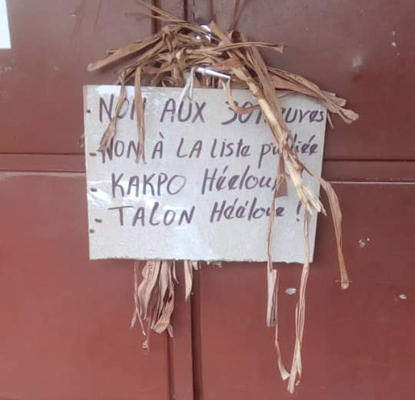 NON AUX
- NON À LA Liste publiée
- KAKPO Héélou
- TALON Hééloue !